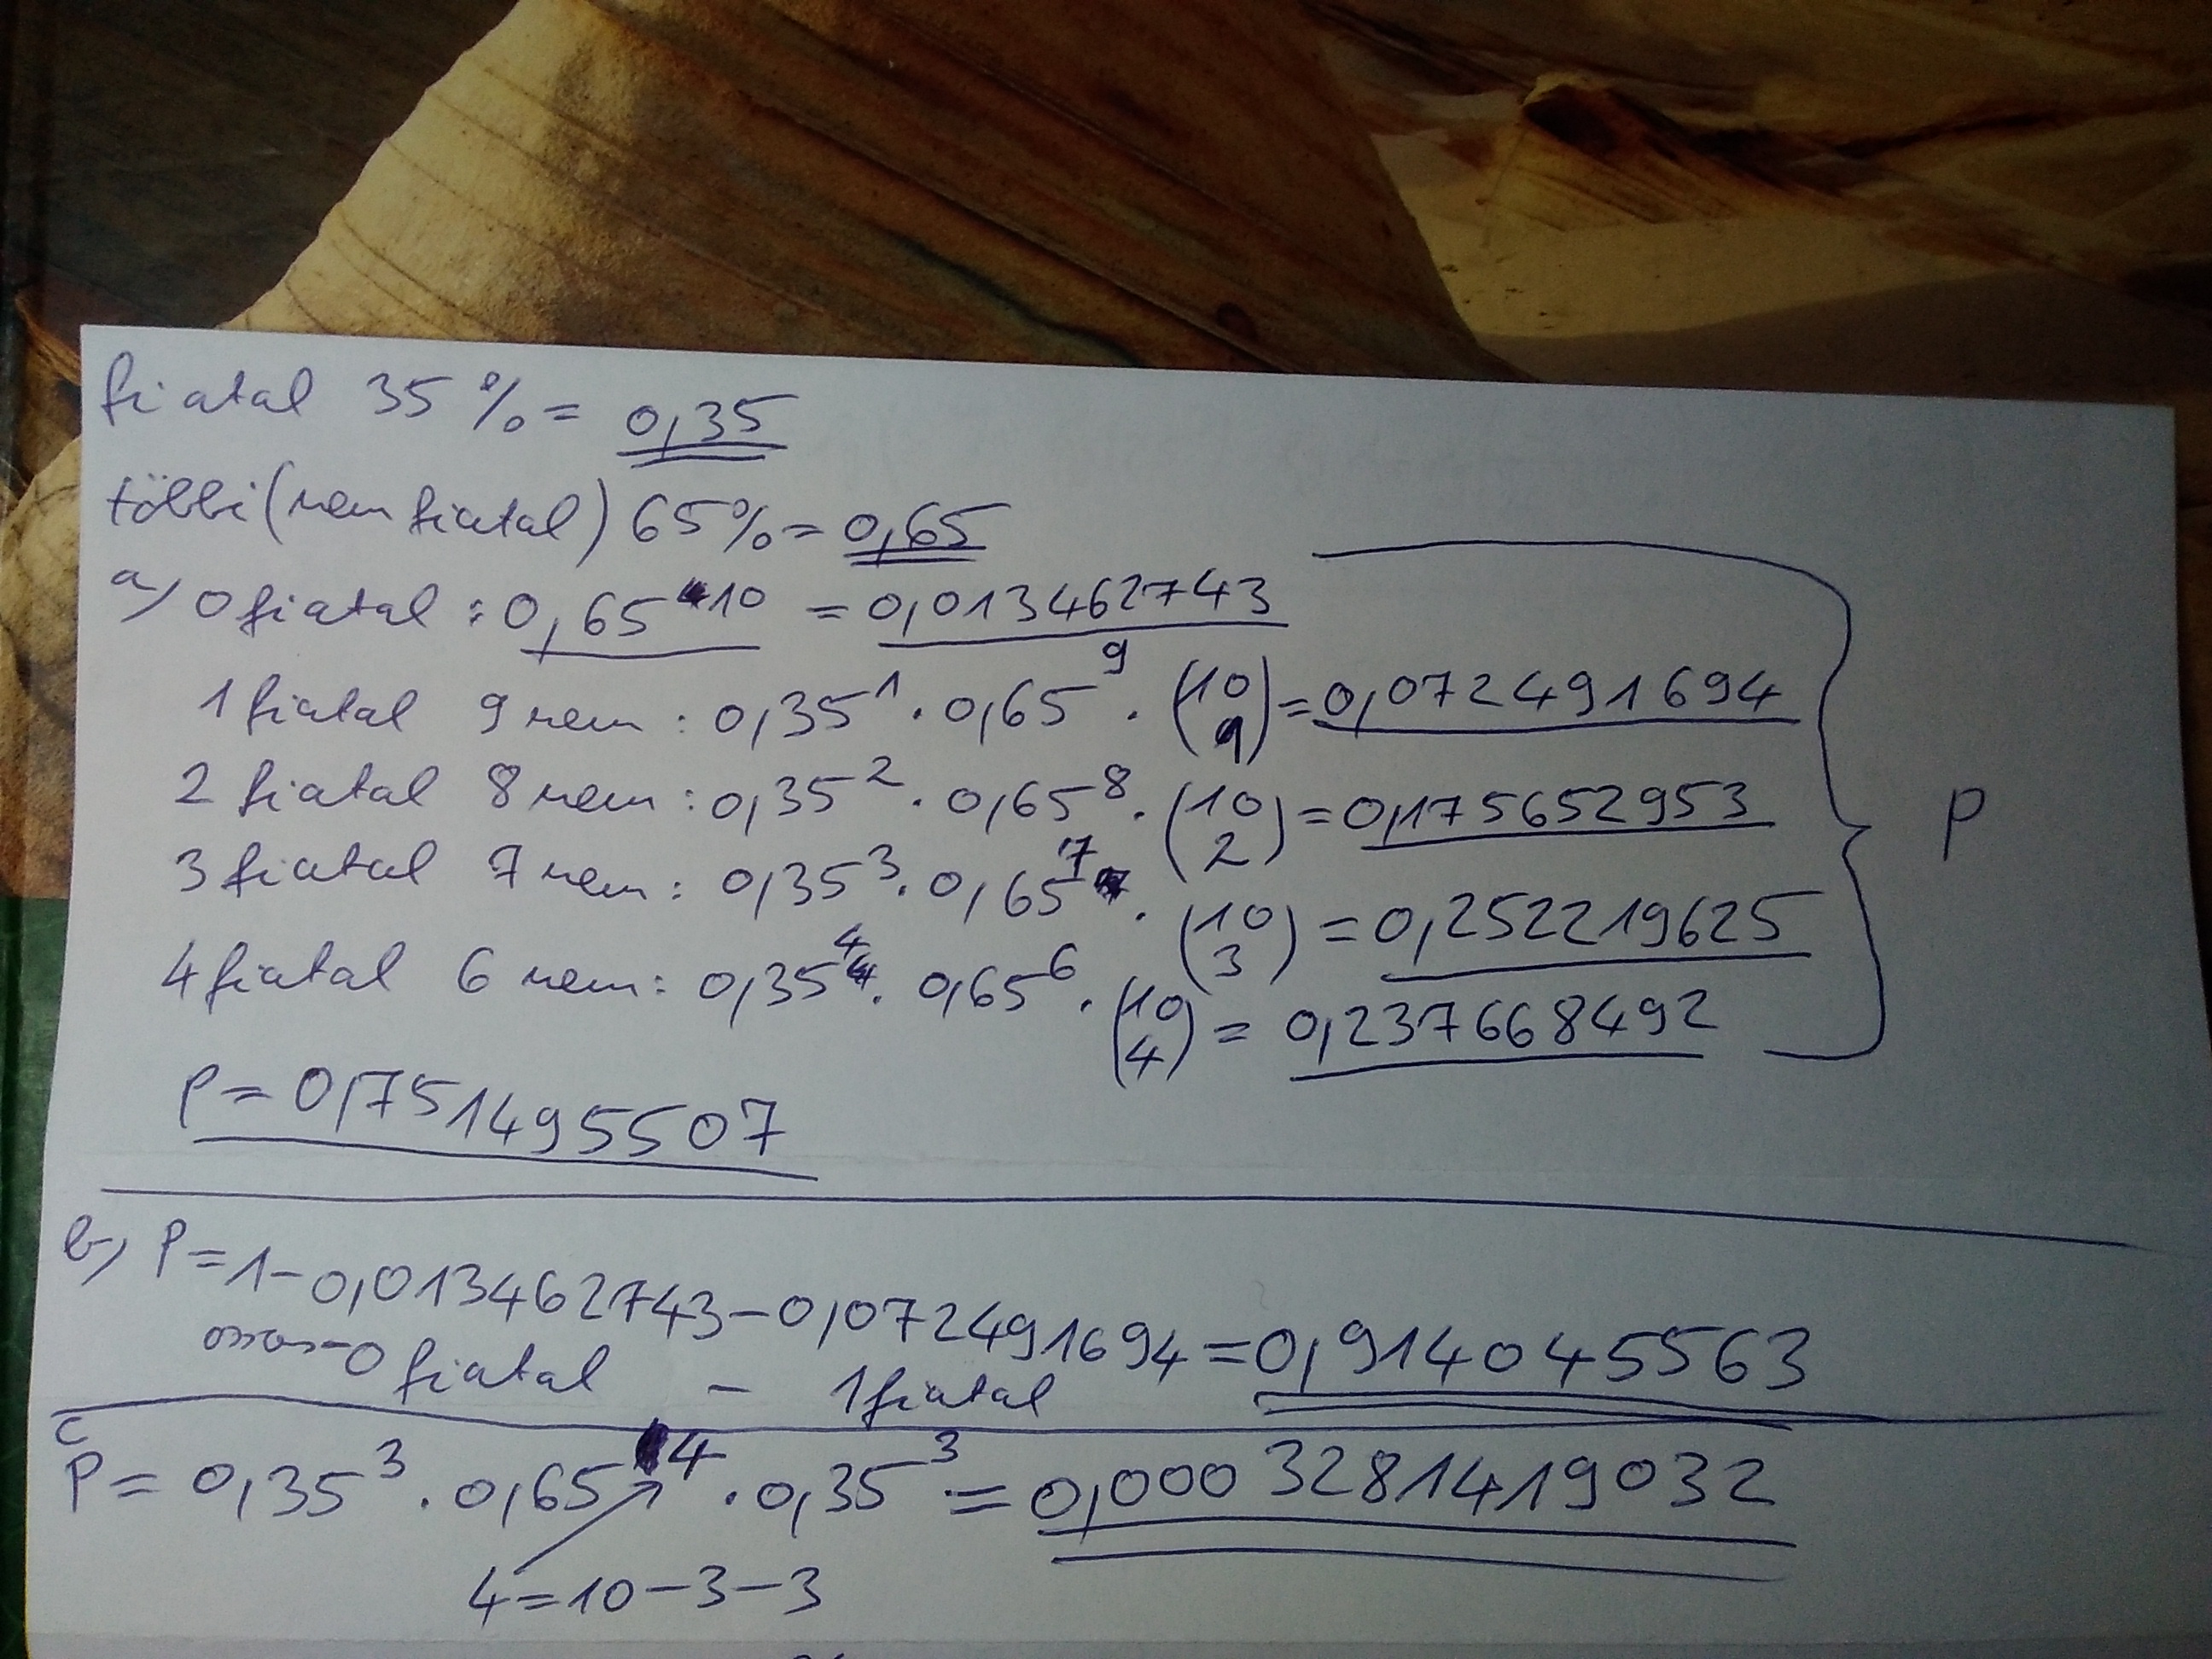 fiatal 35% = 0,35
többi (nem fiatal) 65% = 0,65
a) 0 fiatal : 0,65^10 = 0,013462743
1 fiatal 9 nem : 0,35^1 · 0,65^9 · (10 9) = 0,072491694
2 fiatal 8 nem : 0,35^2 · 0,65^8 · (10 2) = 0,175652953
3 fiatal 7 nem : 0,35^3 · 0,65^7 · (10 3) = 0,252219625
4 fiatal 6 nem : 0,35^4 · 0,65^6 · (10 4) = 0,237668492
P
P = 0,751495507
b) P = 1 - 0,013462743 - 0,072491694 = 0,914045563
- 0 fiatal - 1 fiatal
c
P = 0,35^3 · 0,65^4 · 0,35^3 = 0,0003281419032
4 = 10 - 3 - 3